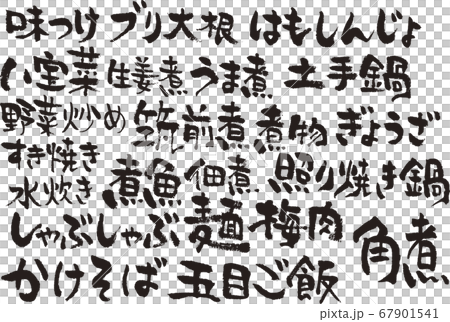 味つけ ブリ大根 はもしんじょ
八宝菜 生姜煮 うま煮 土手鍋
野菜炒め 筑前煮 煮物 ぎょうざ
すき焼き
水炊き 煮魚 佃煮 照り焼き鍋
しゃぶしゃぶ 麺 梅肉 角煮
かけそば 五目ご飯
67901541